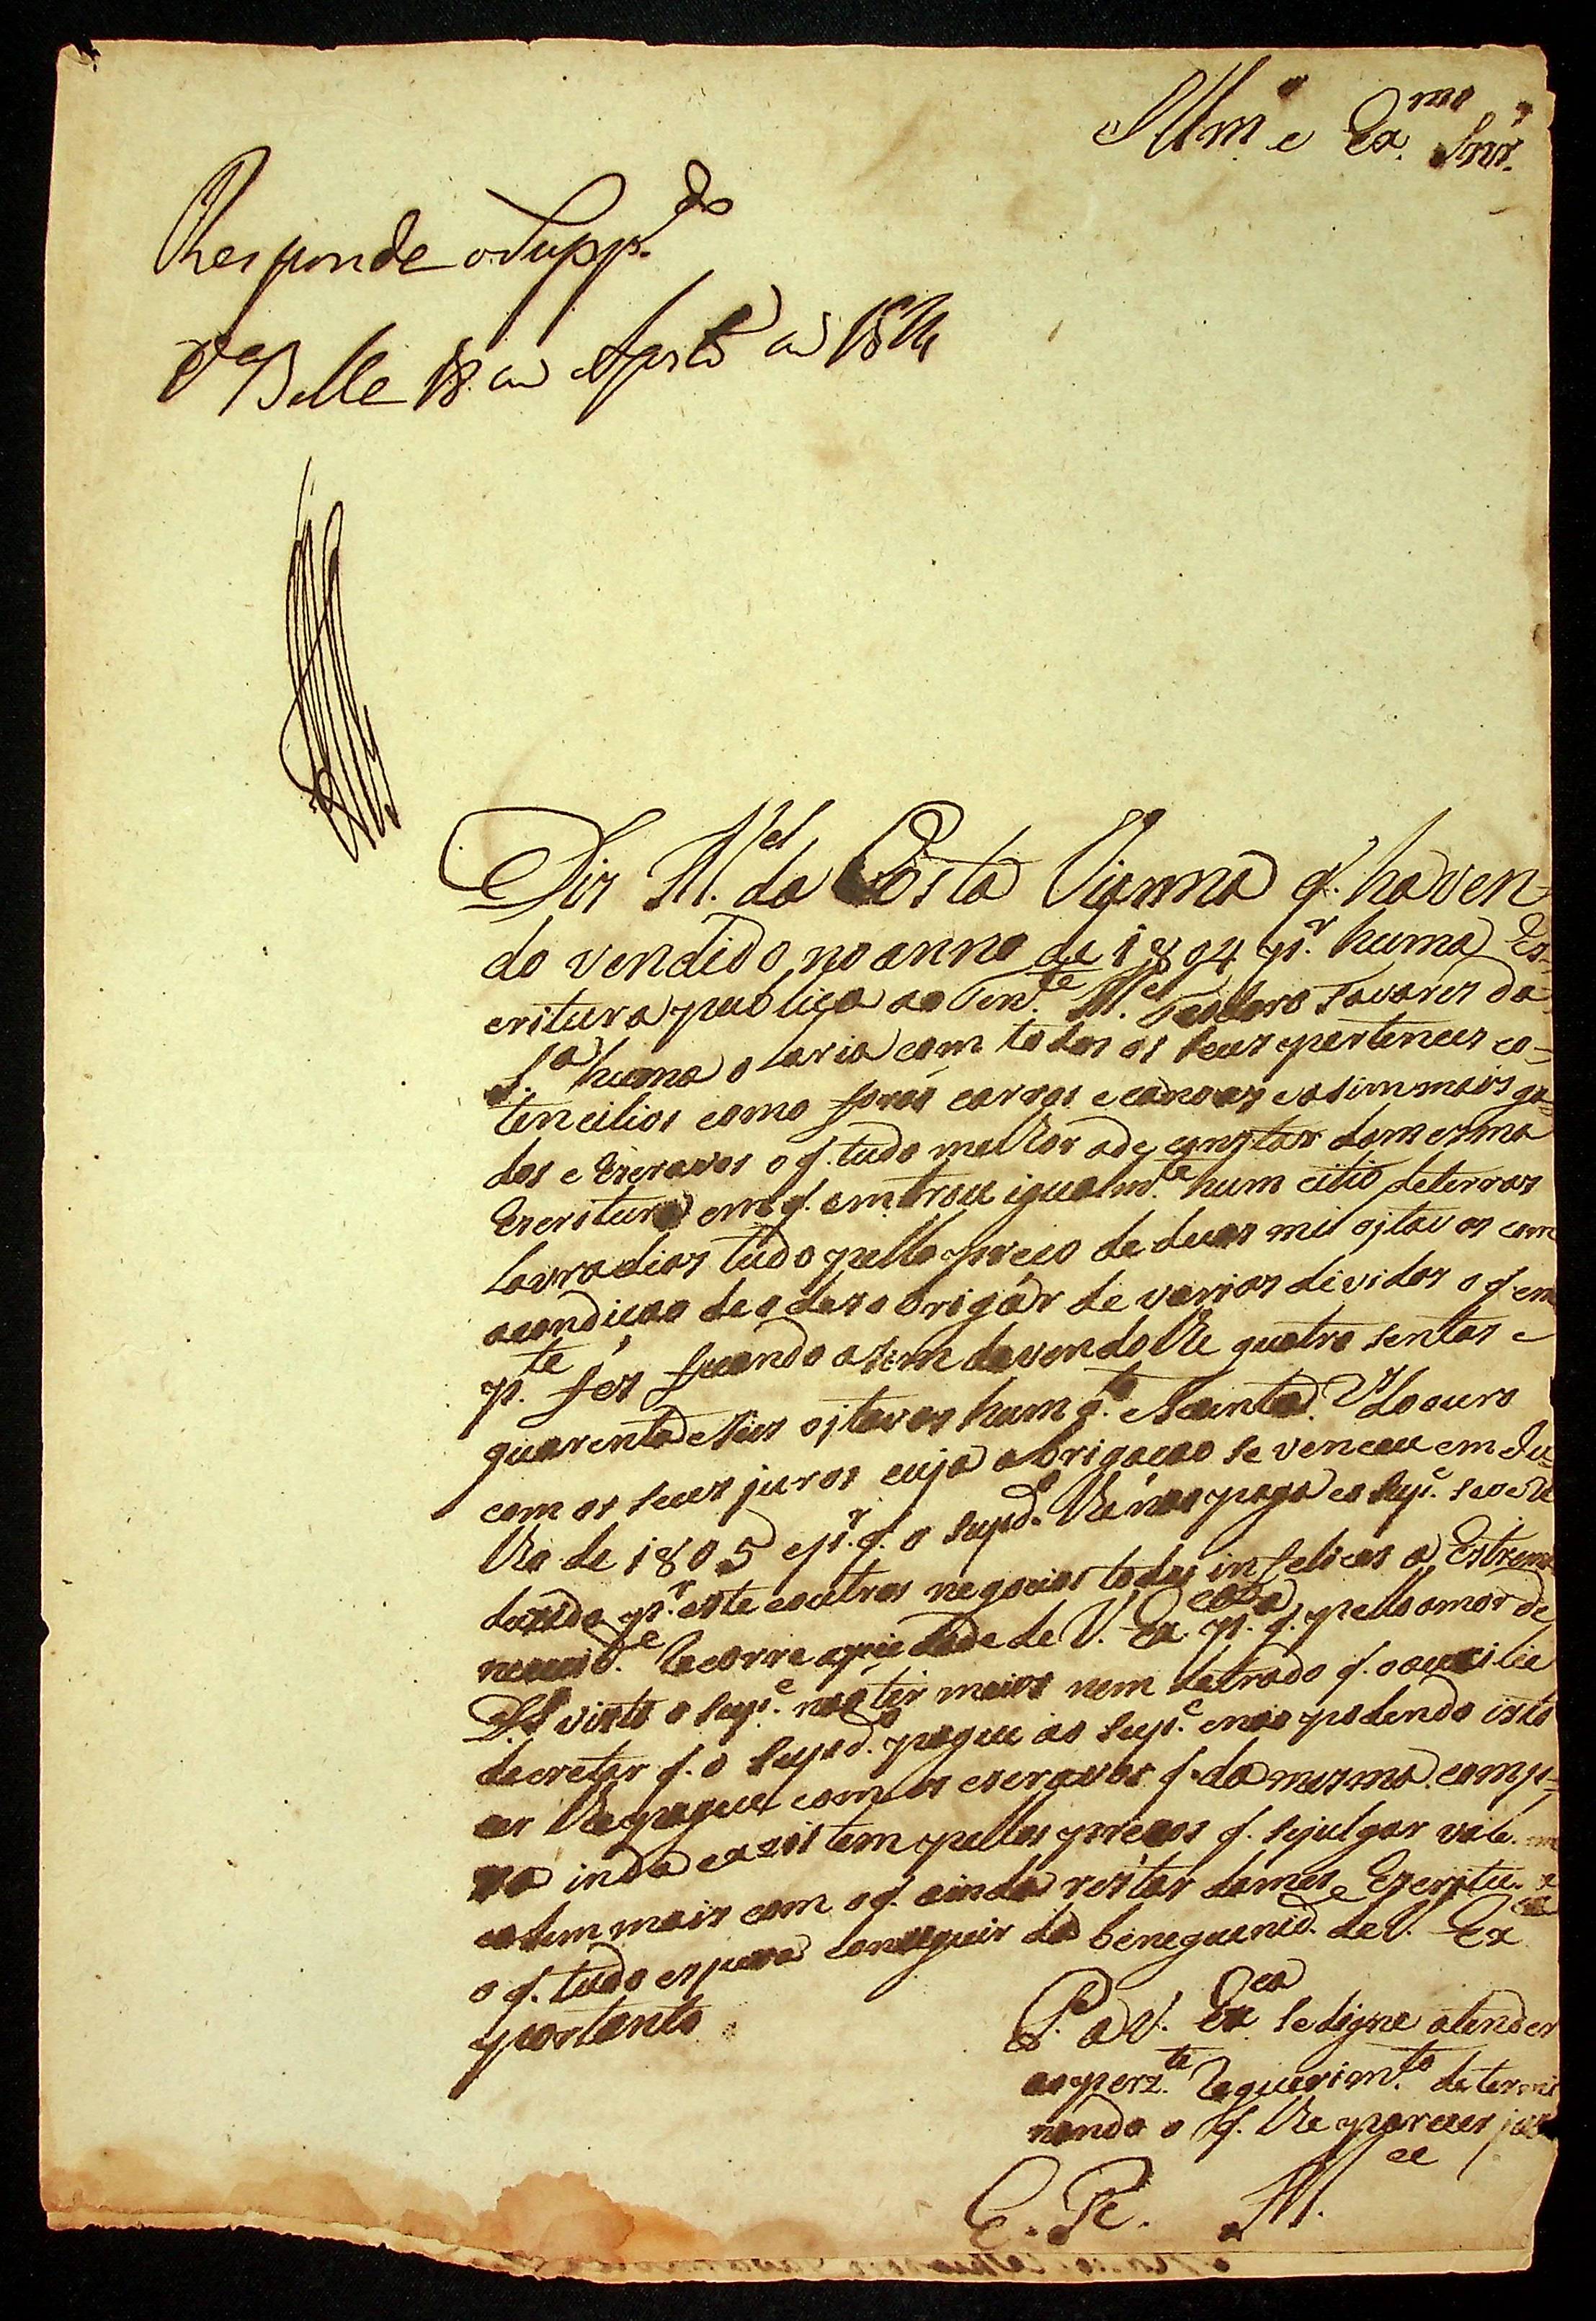 Illm.º e Ex.mo Snr.
Responde o Supp.do
V.a Bella 18 de Agosto de 1814
Diz M.el da Costa Vianna q. haven-
do vendido no anno de 1804 p.r huma Es-
critura publica ao Ten.te M.el Tavares da
S.a huma olaria com todos os seus pertences
tencilios como carros e canoas e asim mais ga-
dos e Escravos o q. tudo melhor ade constar da mesma
Escritura em q. emtrou igualm.te hum citio de terras
lavradias tudo pello preço de duas mil oitavas com
acondicao de o dezobrigár de varias dividas o q. em
p.te fes ficando asim devendolhe quatro sentas e
quarenta e seis oitavas hum q.to e
com os seus juros cuja obrigacao se venceu em Ju-
lho de 1805 e p.r q. o Supd.o lhe nao paga e o Sup.e se ve
p.r este e outros negocios todos infelices a Estrema
Recorre a piedade de V. Ex.cia p.a q. pello amor de
D.s visto o Sup.e não ter meios nem letrado q. o auxilie
decretar q. o Supd.o pague ao Sup.e e nao podendo isto
ser lhe pague com os escravos q. da mesma comp-
ra inda existem pellos preços q. se julgar
e asim mais com o q. ainda restar da mes.
o q. tudo espera conseguir da benegnenid.e de V. Ex.cia
portanto
P. a V. Ex.cia Se digne atender
ao perz.te Requerim.to determi
nando o q. lhe parecer
E. R. M.ce